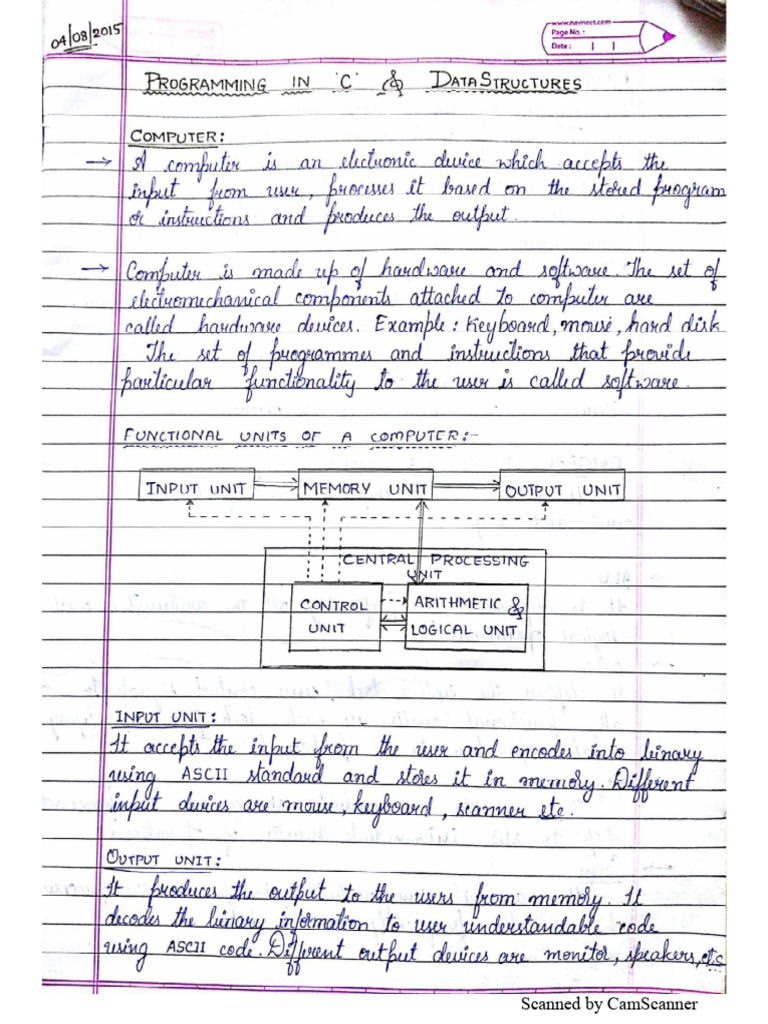 04/08/2015
www.navneet.com
Page No. :
Date :
PROGRAMMING IN 'C' & DATA STRUCTURES
COMPUTER:
→ A computer is an electronic device which accepts the
input from user, processes it based on the stored program
or instructions and produces the output.
→ Computer is made up of hardware and software. The set of
electromechanical components attached to computer are
called hardware devices. Example: Keyboard, mouse, hard disk
The set of programmes and instructions that provide
particular functionality to the user is called software.
FUNCTIONAL UNITS OF A COMPUTER:-
INPUT UNIT MEMORY UNIT OUTPUT UNIT
CENTRAL PROCESSING
UNIT
CONTROL ARITHMETIC &
UNIT LOGICAL UNIT
INPUT UNIT:
It accepts the input from the user and encodes into binary
using ASCII standard and stores it in memory. Different
input devices are mouse, keyboard, scanner etc.
OUTPUT UNIT:
It produces the output to the users from memory. It
decodes the binary information to user understandable code
using ASCII code. Different output devices are monitor, speakers, etc
Scanned by CamScanner